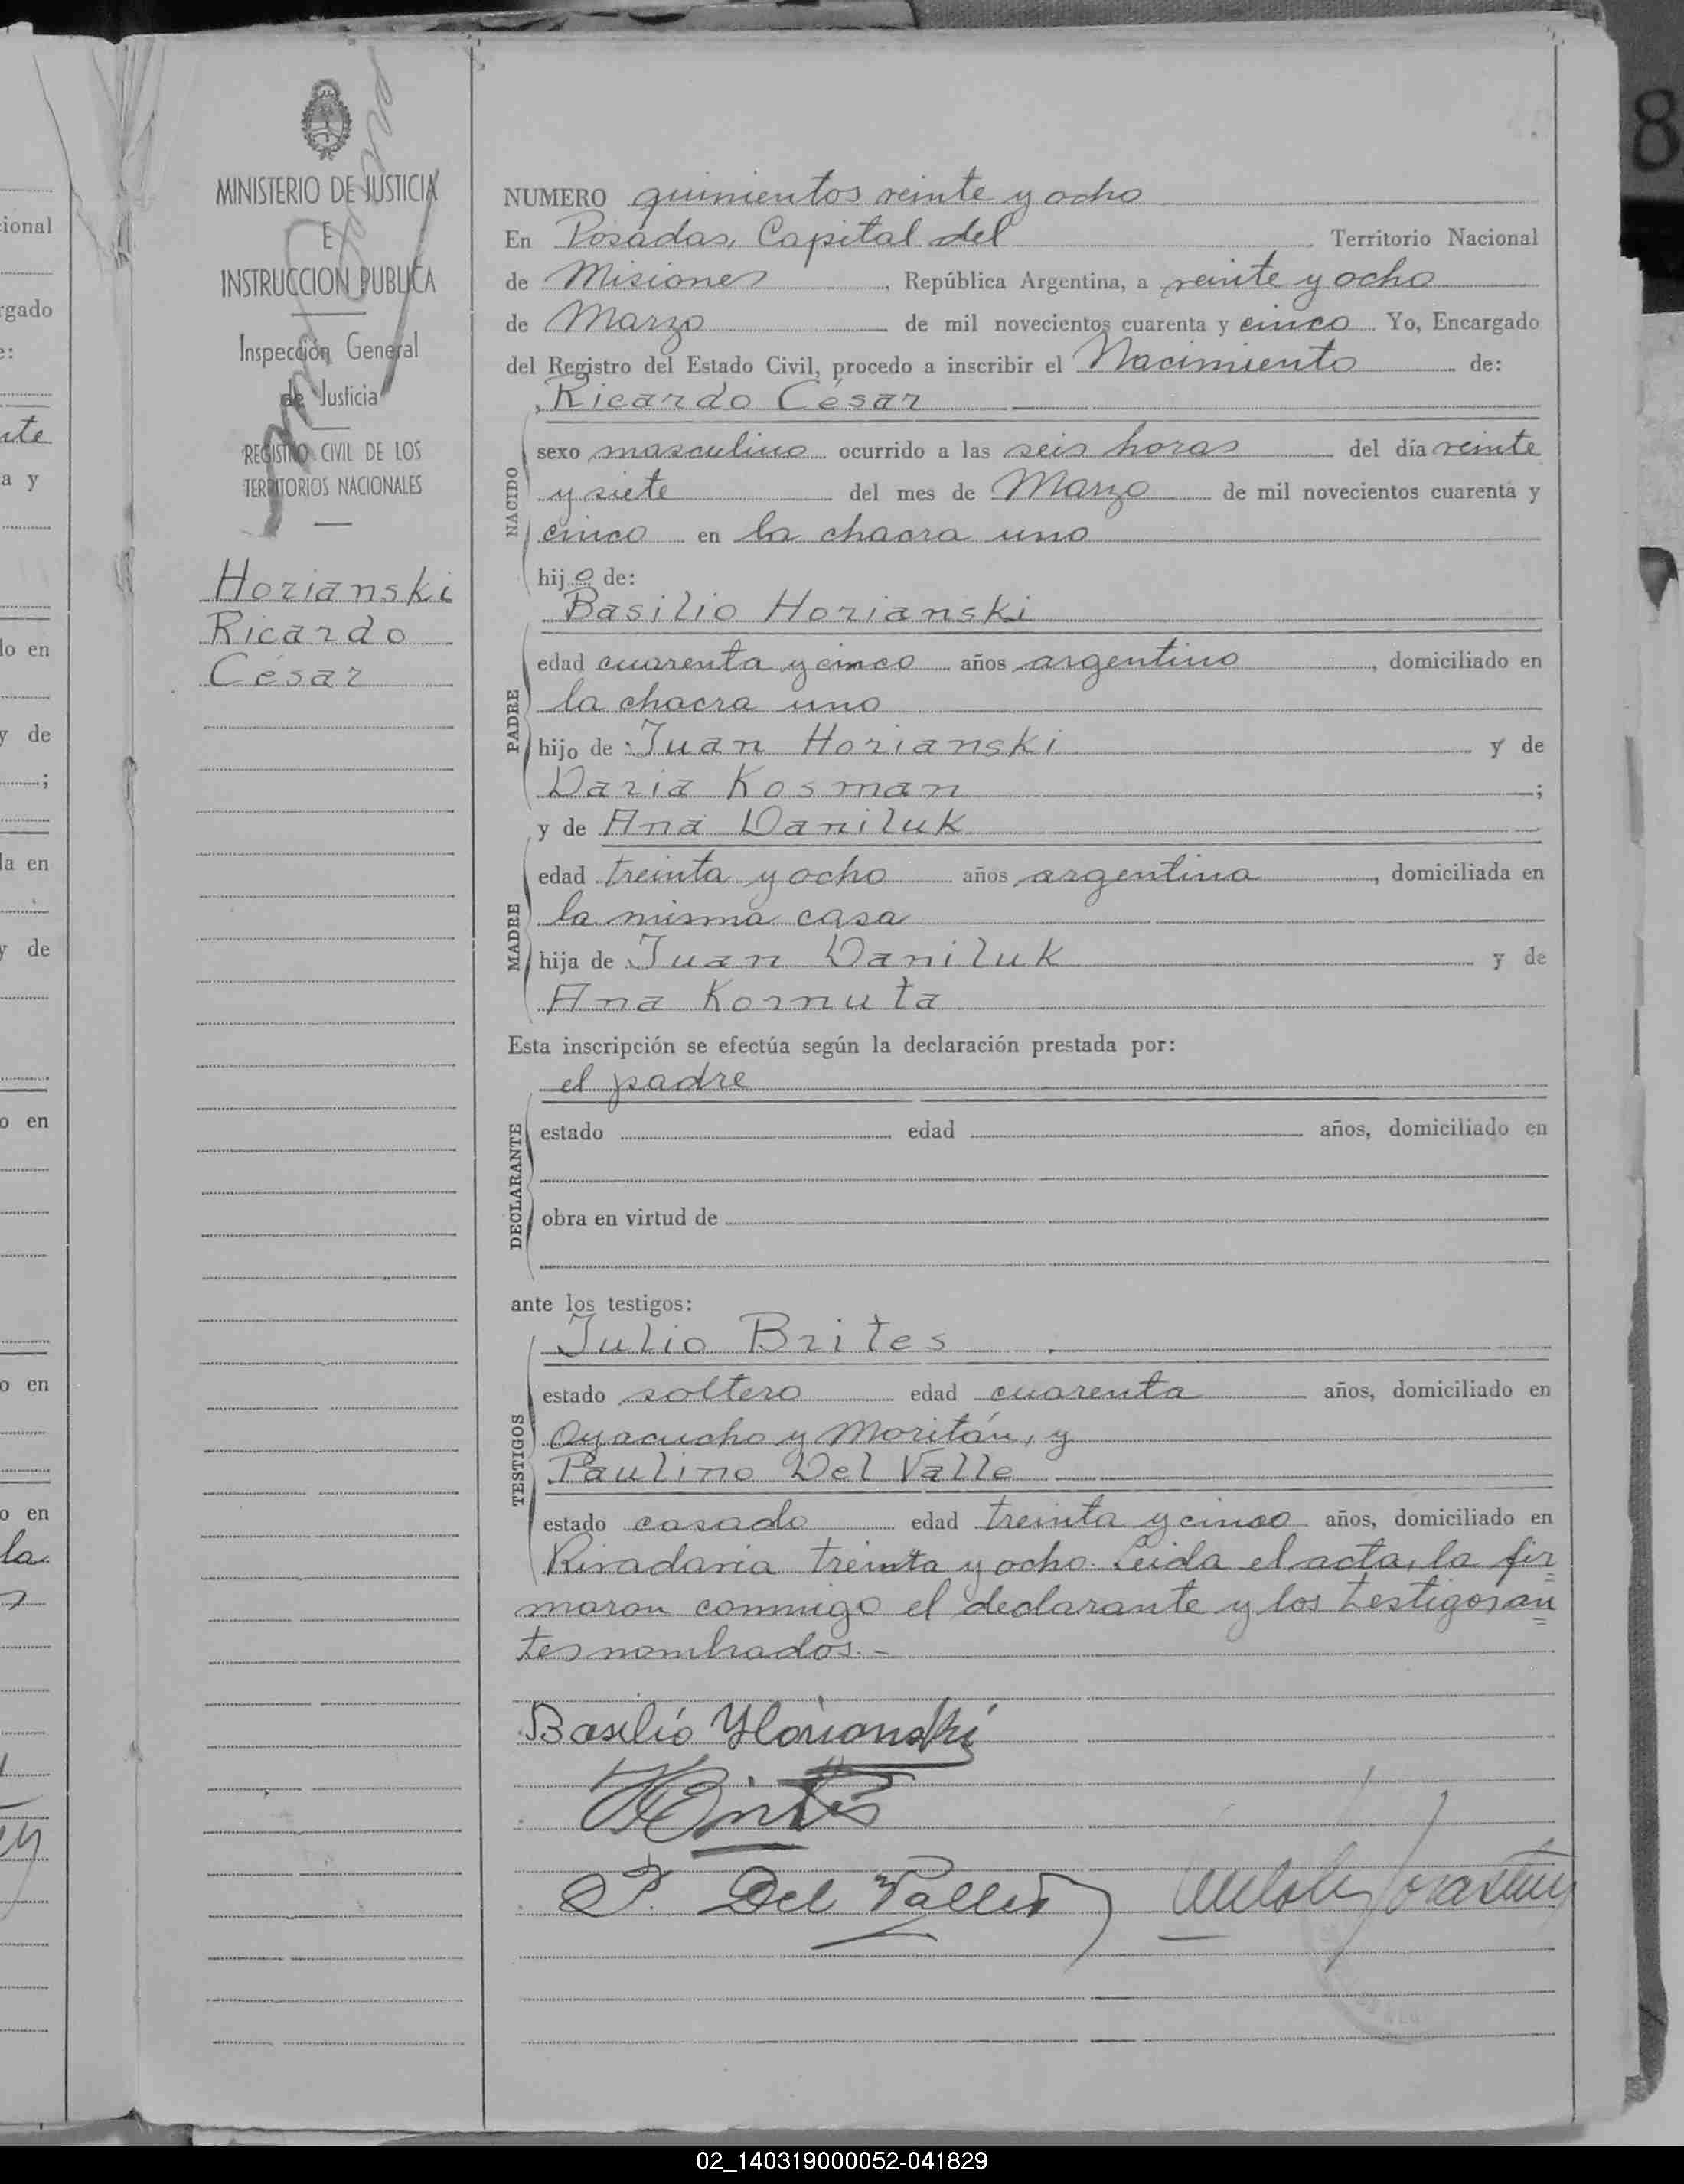 MINISTERIO DE JUSTICIA
E
INSTRUCCION PUBLICA
Inspección General
de Justicia
REGISTRO CIVIL DE LOS
TERRITORIOS NACIONALES
Horianski
Ricardo
César
NUMERO quinientos veinte y ocho
En Posadas, Capital del Territorio Nacional
de Misiones, República Argentina, a veinte y ocho
de Marzo de mil novecientos cuarenta y cinco Yo, Encargado
del Registro del Estado Civil, procedo a inscribir el Nacimiento de:
Ricardo César
NACIDO
sexo masculino ocurrido a las seis horas del día veinte
y siete del mes de Marzo de mil novecientos cuarenta y
cinco en la chacra uno
hijo de:
Basilio Horianski
PADRE
edad cuarenta y cinco años argentino, domiciliado en
la chacra uno
hijo de Juan Horianski y de
Daria Kosman;
y de Ana Daniluk
MADRE
edad treinta y ocho años argentina, domiciliada en
la misma casa
hija de Juan Daniluk y de
Ana Kornuta
Esta inscripción se efectúa según la declaración prestada por:
el padre
DECLARANTE
estado edad años, domiciliado en
obra en virtud de
ante los testigos:
Julio Brites
TESTIGOS
estado soltero edad cuarenta años, domiciliado en
Ayacucho y Moritán, y
Paulino Del Valle
estado casado edad treinta y cinco años, domiciliado en
Rivadavia treinta y ocho. Leida el acta, la fir
maron conmigo el declarante y los testigos an
tes nombrados.-
Basilio Horianski
JBrites
P. Del Valle
8
ional
rgado
e:
nte
a y
lo en
y de
;
la en
y de
o en
o en
o en
la
02_140319000052-041829